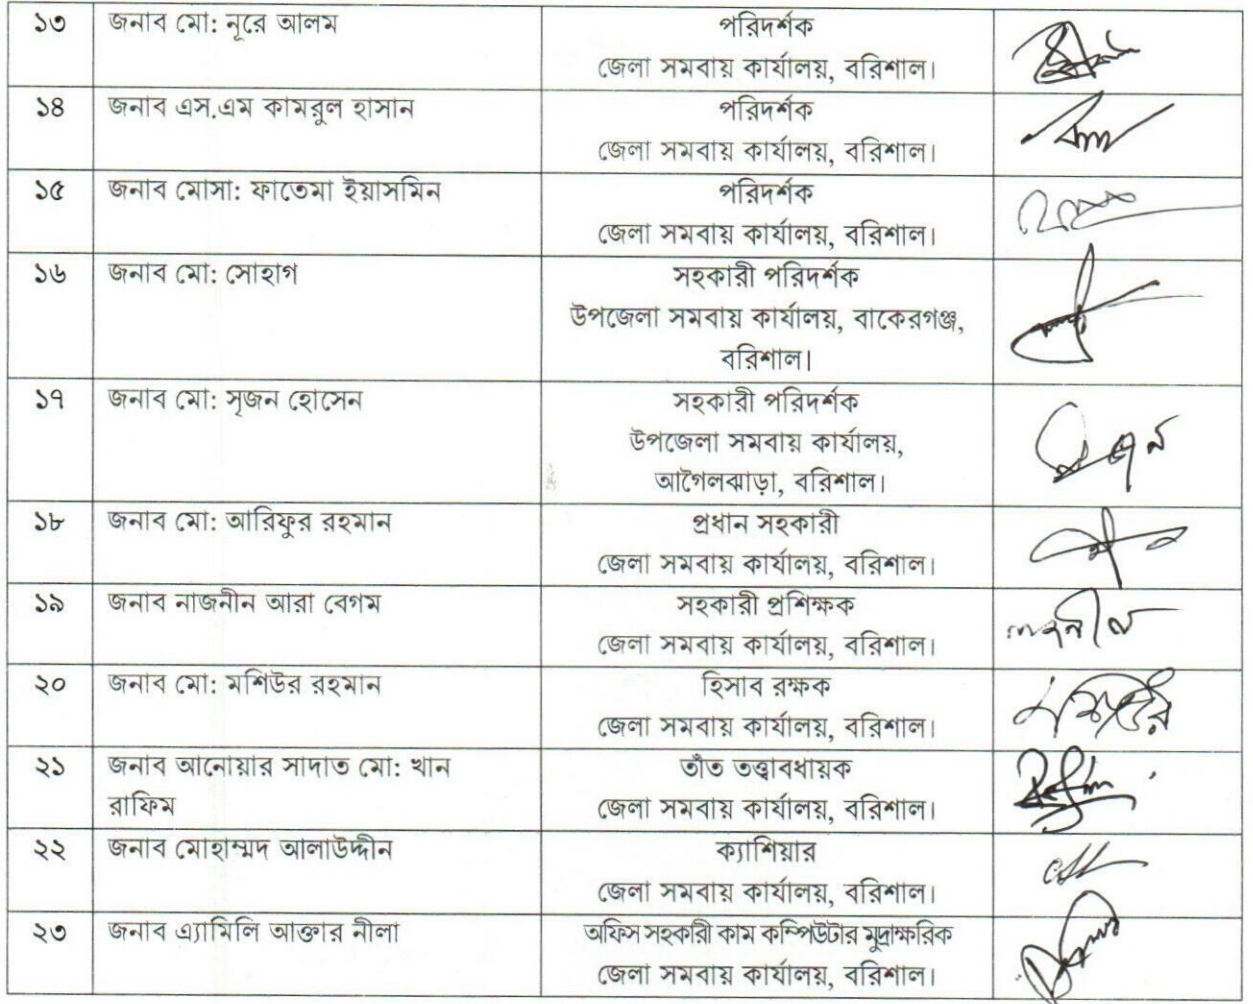 ১৩ জনাব মো: নূরে আলম পরিদর্শক
জেলা সমবায় কার্যালয়, বরিশাল।
১৪ জনাব এস.এম কামরুল হাসান পরিদর্শক
জেলা সমবায় কার্যালয়, বরিশাল।
১৫ জনাব মোসা: ফাতেমা ইয়াসমিন পরিদর্শক
জেলা সমবায় কার্যালয়, বরিশাল।
১৬ জনাব মো: সোহাগ সহকারী পরিদর্শক
উপজেলা সমবায় কার্যালয়, বাকেরগঞ্জ,
বরিশাল।
১৭ জনাব মো: সৃজন হোসেন সহকারী পরিদর্শক
উপজেলা সমবায় কার্যালয়,
আগৈলঝাড়া, বরিশাল।
১৮ জনাব মো: আরিফুর রহমান প্রধান সহকারী
জেলা সমবায় কার্যালয়, বরিশাল।
১৯ জনাব নাজনীন আরা বেগম সহকারী প্রশিক্ষক
জেলা সমবায় কার্যালয়, বরিশাল।
২০ জনাব মো: মশিউর রহমান হিসাব রক্ষক
জেলা সমবায় কার্যালয়, বরিশাল।
২১ জনাব আনোয়ার সাদাত মো: খান তাঁত তত্ত্বাবধায়ক
রাফিম জেলা সমবায় কার্যালয়, বরিশাল।
২২ জনাব মোহাম্মদ আলাউদ্দীন ক্যাশিয়ার
জেলা সমবায় কার্যালয়, বরিশাল।
২৩ জনাব এ্যামিলি আক্তার নীলা অফিস সহকারী কাম কম্পিউটার মুদ্রাক্ষরিক
জেলা সমবায় কার্যালয়, বরিশাল।